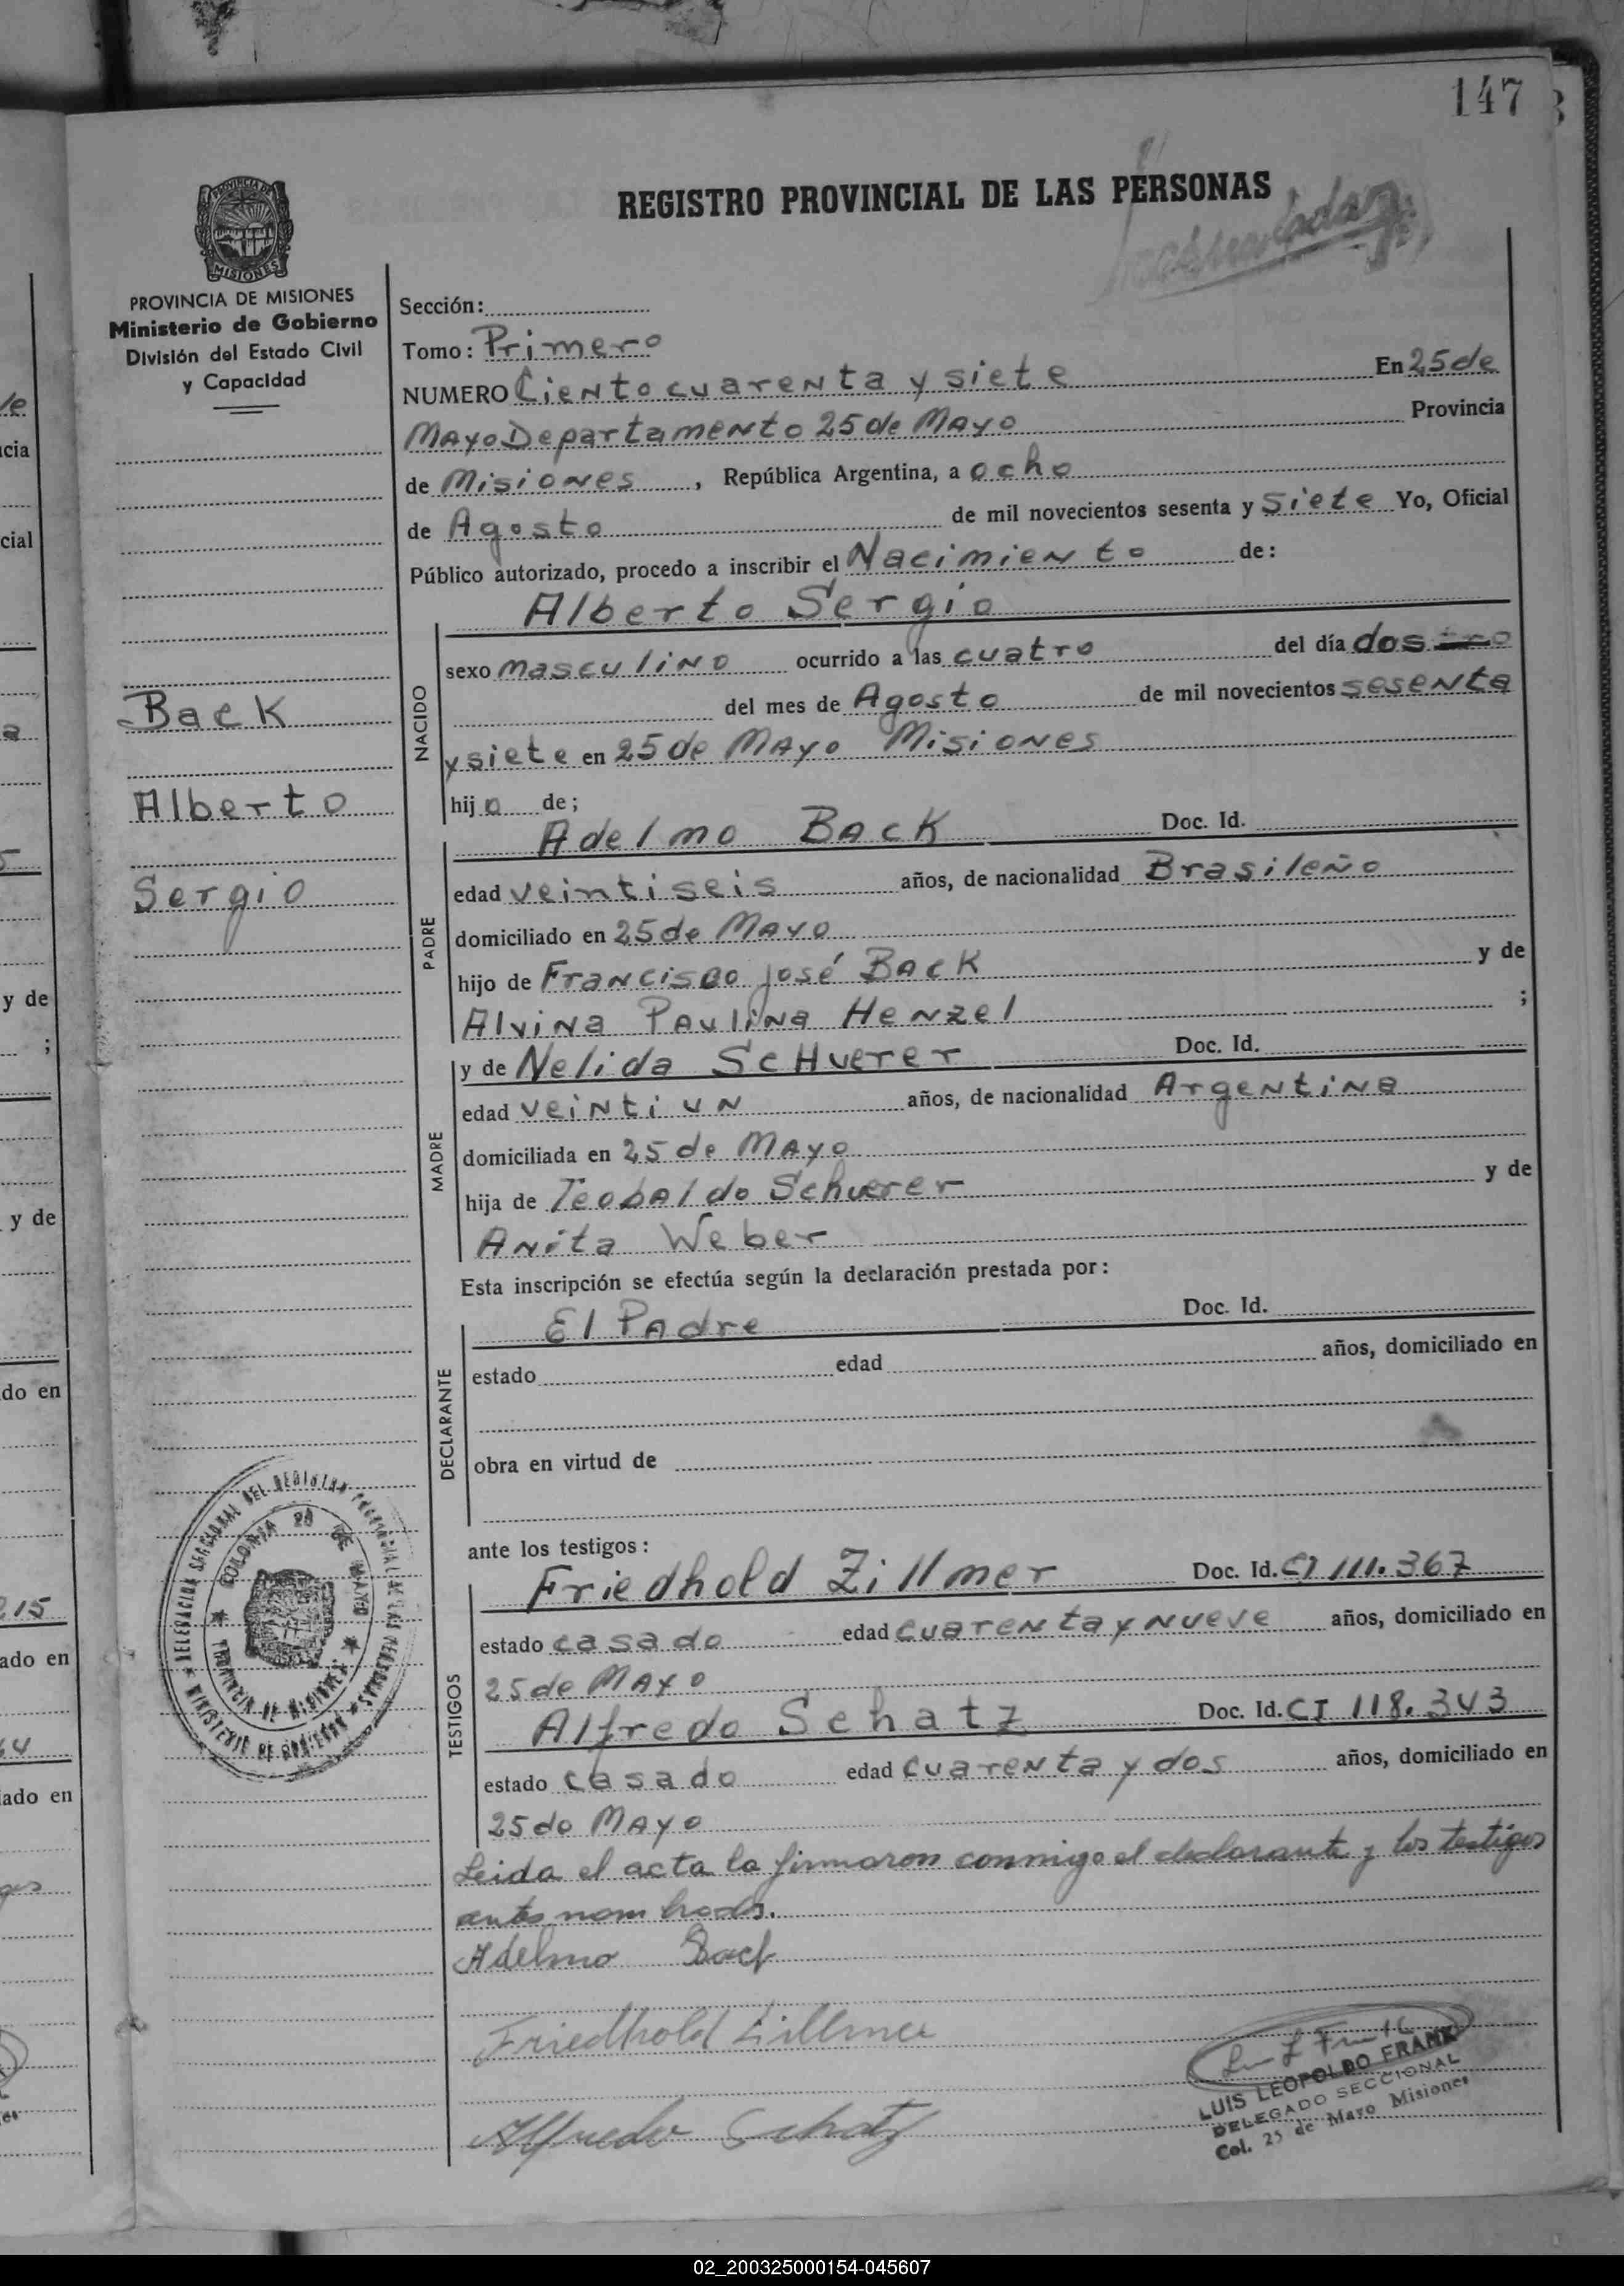 147
REGISTRO PROVINCIAL DE LAS PERSONAS
PROVINCIA DE
MISIONES
PROVINCIA DE MISIONES
Ministerio de Gobierno
División del Estado Civil
y Capacidad
Back
Alberto
Sergio
Sección:
Tomo: Primero
NUMERO Ciento cuarenta y siete En 25 de
Mayo Departamento 25 de Mayo Provincia
de Misiones, República Argentina, a ocho
de Agosto de mil novecientos sesenta y siete Yo, Oficial
Público autorizado, procedo a inscribir el Nacimiento de:
Alberto Sergio
NACIDO
sexo masculino ocurrido a las cuatro del día dos
del mes de Agosto de mil novecientos sesenta
y siete en 25 de Mayo Misiones
hijo de;
Adelmo Back Doc. Id.
PADRE
edad veintiseis años, de nacionalidad Brasileño
domiciliado en 25 de Mayo
hijo de Francisco José Back y de
Alvina Paulina Henzel ;
y de Nelida Schuerer Doc. Id.
MADRE
edad veintiun años, de nacionalidad Argentina
domiciliada en 25 de Mayo
hija de Teobaldo Schuerer y de
Anita Weber
Esta inscripción se efectúa según la declaración prestada por:
El Padre Doc. Id.
DECLARANTE
estado edad años, domiciliado en
obra en virtud de
ante los testigos:
Friedhold Zillmer Doc. Id. CI 111.367
TESTIGOS
estado casado edad cuarenta y nueve años, domiciliado en
25 de Mayo
Alfredo Schatz Doc. Id. CI 118.343
estado casado edad cuarenta y dos años, domiciliado en
25 de Mayo
Leida el acta la firmaron conmigo el declarante y los testigos
antes nombrados.
Adelmo Back
Friedhold Zillmer
Alfredo Schatz
LUIS LEOPOLDO FRANK
DELEGADO SECCIONAL
Col. 25 de Mayo Misiones
DELEGACION SECCIONAL DEL REGISTRO PROVINCIAL DE LAS PERSONAS
MINISTERIO DE GOBIERNO
COLONIA 25 DE MAYO
PROVINCIA DE MISIONES
y de
;
y de
do en
215
ado en
64
ado en
02_200325000154-045607